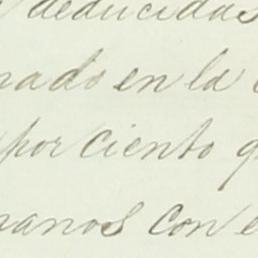 deducidas
nado en la
por ciento q
manos con e